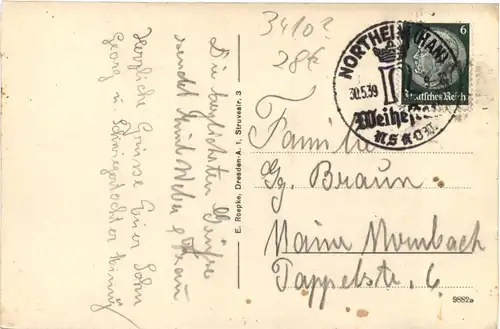 3410?
28€
NORTHEIM (HAN)
30.5.39
Weihestätte
NSKOV
6
Deutsches Reich
Die herzlichsten Grüße
sendet Knut Weber & Frau
Herzliche Grüsse Euer Sohn
Georg u. Schwiegertochter Minnig
E. Roepke, Dresden-A. 1, Struvestr. 3
Familie
Gg. Braun
Mainz Mombach
Pappelstr. 6
9882a